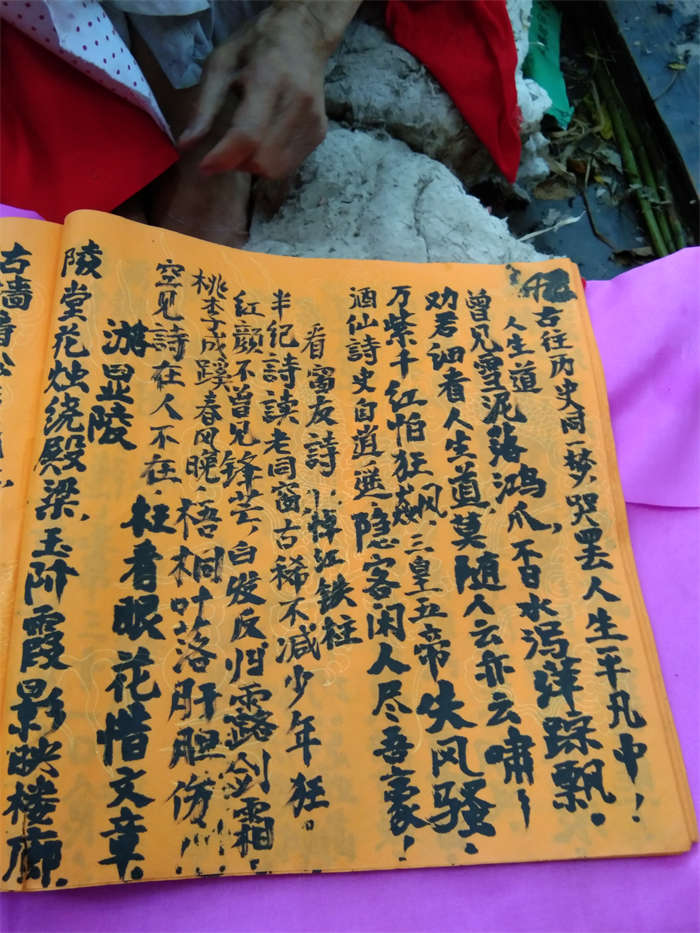 古往历史同一梦,哭罢人生平凡中!
人生道
曾见雪泥落鸿爪,不日水泻萍踪飘.
劝君细看人生道莫随人云亦云啸!
万紫千红怕狂飙,三皇五帝失风骚.
酒仙詩史自逍遥隐客闲人尽吾豪!
看窗友詩掉江铁柱
半纪詩读老同窗古稀不减少年狂。
红颜不曾见锋芒白发反归露剑霜
桃李成蹊春风晚梧桐叶落肝胆伤
空见詩在人不在.枉看眼花惜文章.
游显陵
陵堂花烛绕殿梁.玉阶霞影映楼廊.
古墙青松